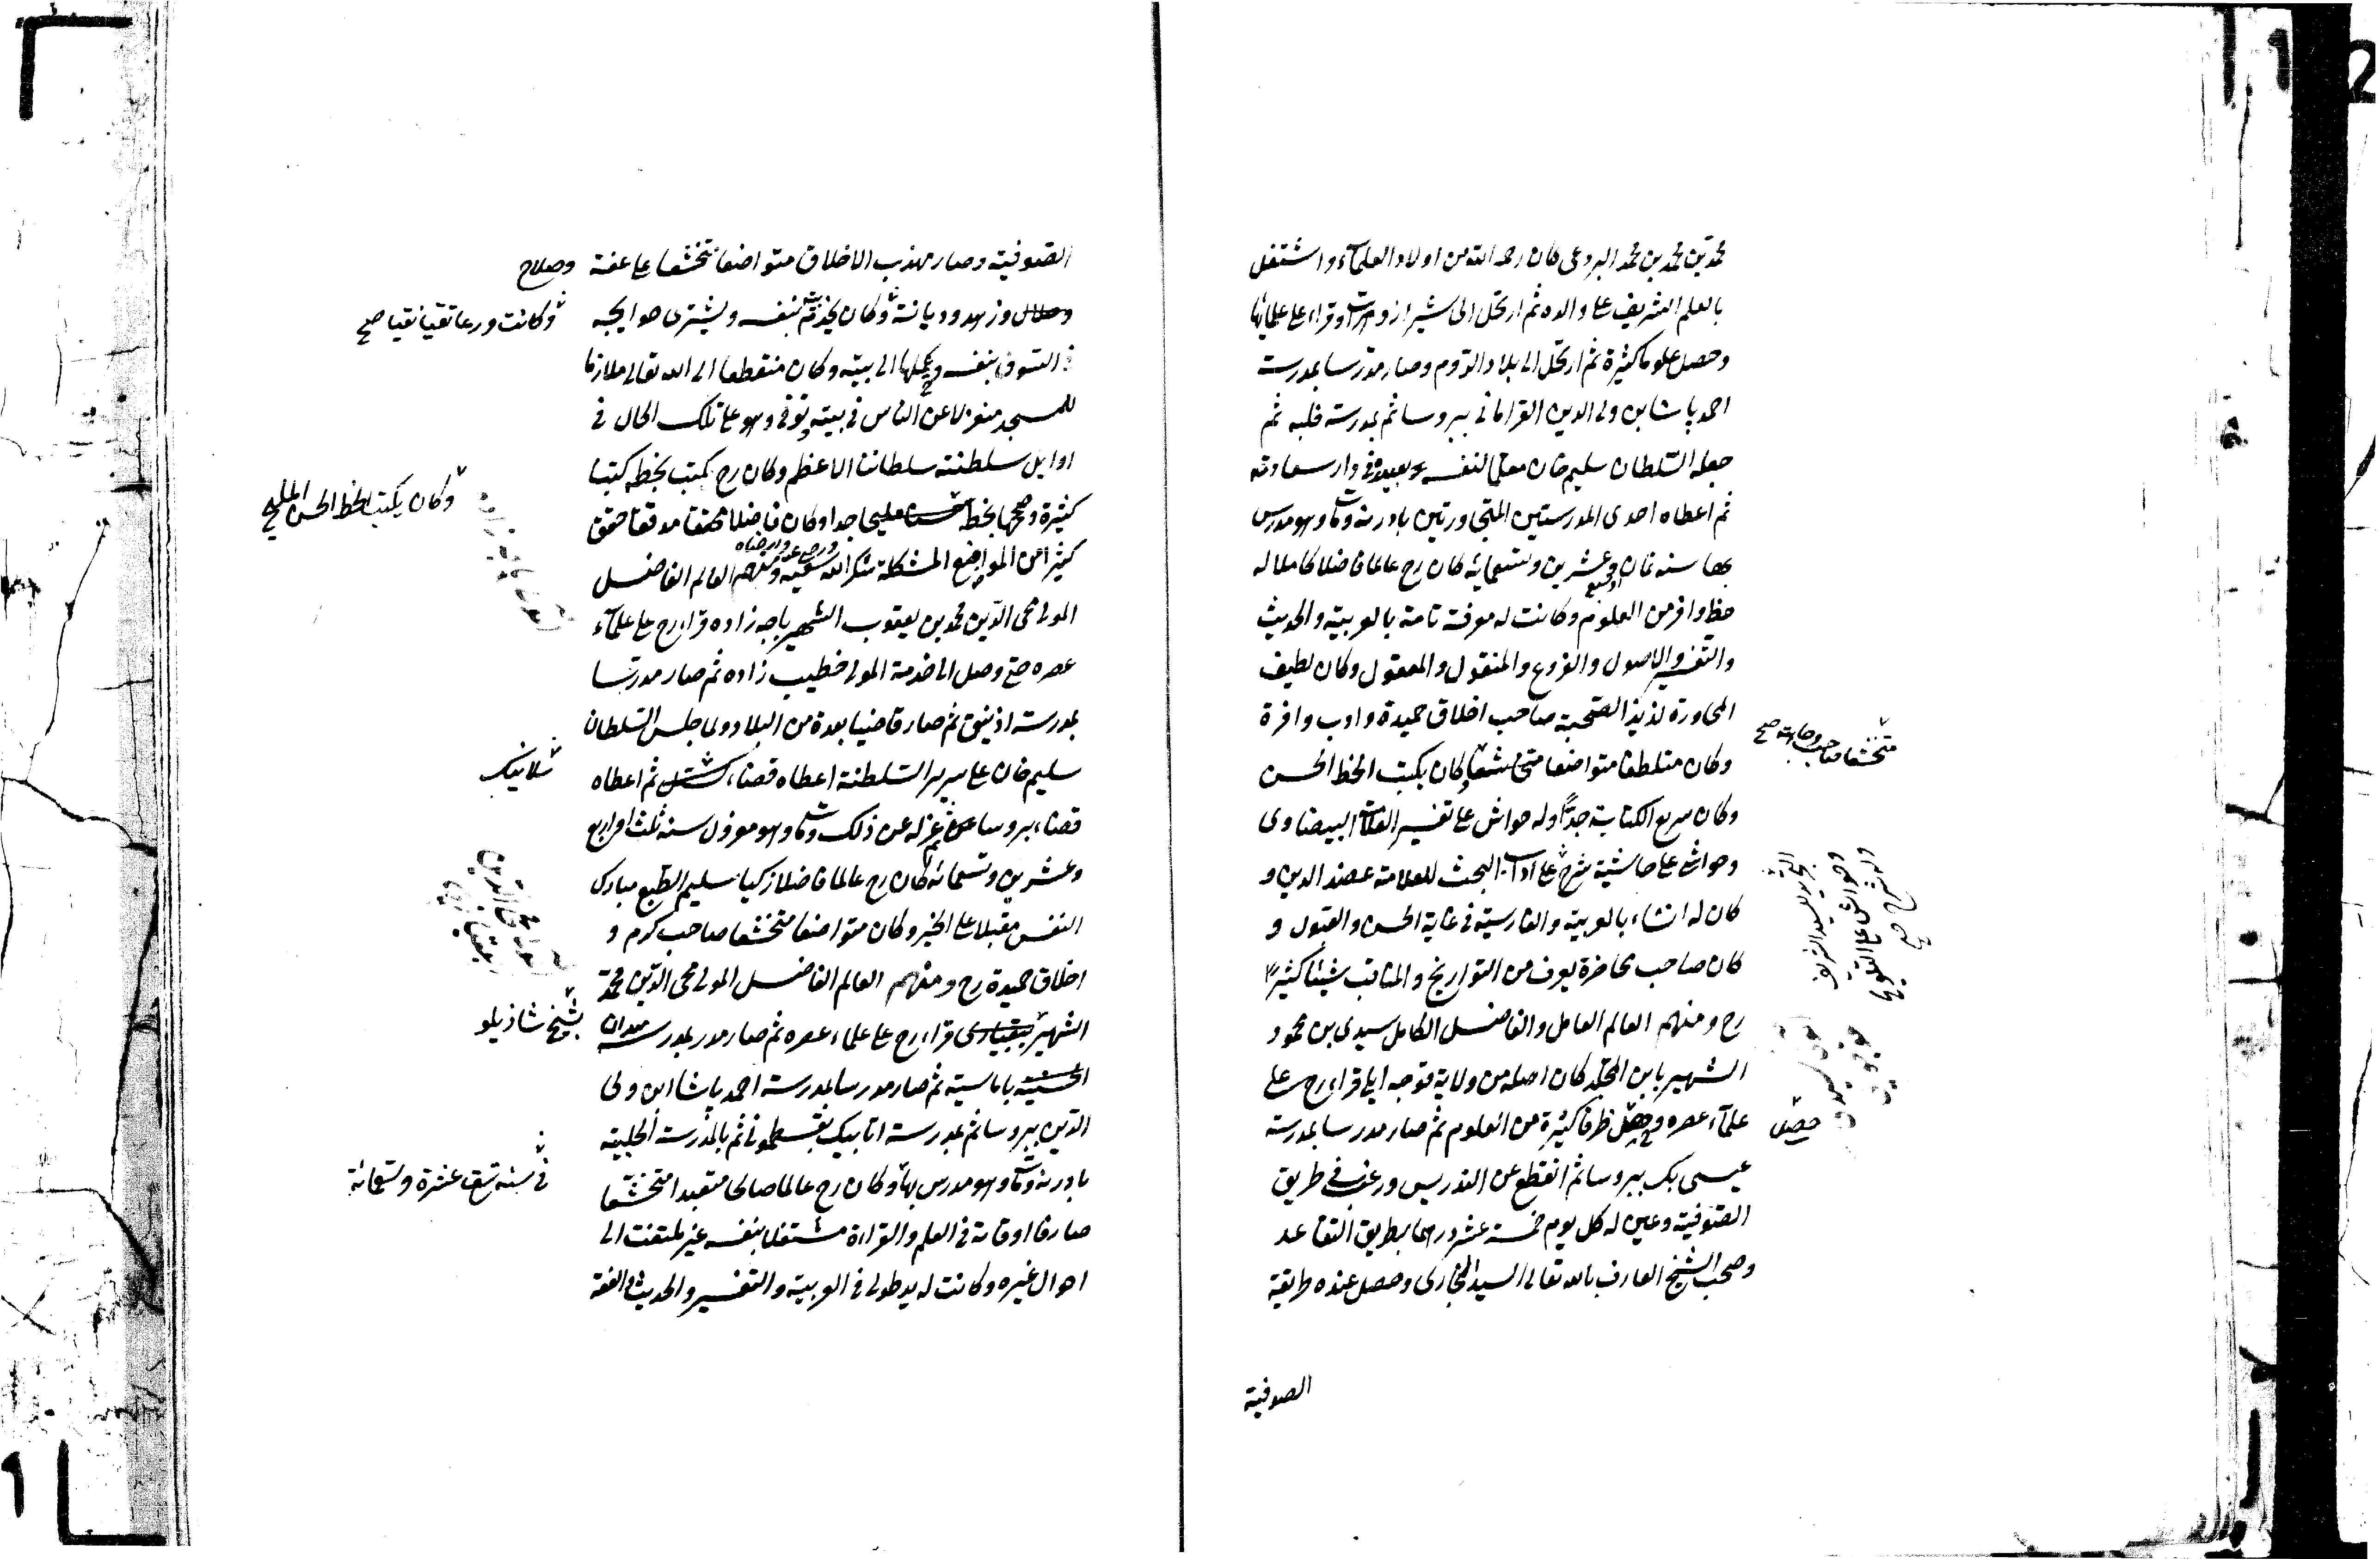 محمد بن محمد بن محمد البردعى كان رحمه الله من اولاد العلماء واشتغل
بالعلم الشريف على والده ثم ارتحل الى شيراز وهرات وقراء على علمائها
وحصل علوما كثيرة ثم ارتحل الى بلاد الروم وصار مدرسا بمدرسة
احمد پاشا بن ولى الدين القرامانى ببروسا ثم بمدرسة فلبه ثم
جعله السلطان سليم خان معلما لنفسه فى دار سعادته
ثم اعطاه احدى المدرستين المتجاورتين بادرنه ومات وهو مدرس
بها سنة ثمان وعشرين وتسعمائة كان رح عالما فاضلا كاملا له
حظ وافر من العلوم وكانت له معرفة تامة بالعربية والحديث
والتفسير والاصول والفروع والمنقول والمعقول وكان لطيف
المحاورة لذيذ الصحبة صاحب اخلاق حميدة وادب وافرة
وكان متلطفا متواضعا متخاشعا وكان يكتب الخط الحسن
وكان سريع الكتابة جدًّا وله حواش على تفسير البيضاوى
وحواش على حاشية شرح على اداب البحث للعلامة عضد الدين و
كان له انشاء بالعربية والفارسية فى غاية الحسن والقبول و
كان صاحب محاضرة يعرف من التواريخ والمناقب شيئا كثيرًا
رح ومنهم العالم العامل والفاضل الكامل سيدى بن محمود
الشهير بابن المجلد كان اصله من ولاية قوجه ايلى قراء رح على
علماء عصره وحصل طرفا كثيرة من العلوم ثم صار مدرسا بمدرسة
عيسى بك ببروسا ثم انقطع عن التدريس ورغب فى طريق
الصوفية وعين له كل يوم خمسة عشر درهما بطريق التقاعد
وصحب الشيخ العارف بالله تعالى السيد البخارى وحصل عنده طريقة
الصوفية
متخشعا صاحب وجاهة صح
التجريد للسيد الشريف
وحواش على التلويح
وله شرح صح
حصل
الصوفية وصار مهذب الاخلاق متواضعا متخشعا على عفة وصلاح
وزهد وديانة وكان يخدم بيته بنفسه ويشترى حوايجه
فى السوق بنفسه ويحملها الى بيته وكان منقطعا الى الله تعالى ملازما
للمسجد منعزلا عن الناس فى بيته توفى وهو على تلك الحال فى
اوايل سلطنة سلطاننا الاعظم وكان رح كتب بخطه كتبا
كثيرة وصححها بخطه مليحا جدا وكان فاضلا محققا مدققا حقق
كثيرا من المواضع المشكلة شكر الله سعيه ومنهم العالم الفاضل
المولى محى الدين محمد بن يعقوب الشهير باجه زاده قراء رح على علماء
عصره حتى وصل الى خدمة المولى خطيب زاده ثم صار مدرسا
بمدرسة ازنيق ثم صار قاضيا بعدة من البلاد ولما جلس السلطان
سليم خان على سرير السلطنة اعطاه قضاء ثم اعطاه
قضاء بروسا ثم عزله عن ذلك ومات وهو معزول سنة ثلث او اربع
وعشرين وتسعمائة كان رح عالما فاضلا زكيا سليم الطبع مبارك
النفس مقبلا على الخير وكان متواضعا متخشعا صاحب كرم و
اخلاق حميدة رح ومنهم العالم الفاضل المولى محى الدين محمد
الشهير قراء رح على علماء عصره ثم صار مدرسا بمدرسة
باماسية ثم صار مدرسا بمدرسة احمد پاشا ابن ولى
الدين ببروسا ثم بمدرسة اتابيك بقسطمونى ثم بالمدرسة الحلبية
بادرنه ومات وهو مدرس بها وكان رح عالما صالحا متعبدا متخشعا
صارفا اوقاته فى العلم والقراءة مشتغلا بنفسه غير ملتفت الى
احوال غيره وكانت له يد طولى فى العربية والتفسير والحديث والفقه
وكانت ورعا تقيا نقيا صح
وكان يكتب الخط الحسن المليح
سلانيك
بشيخ شاذيلو
فى سنة تسع عشرة وتسعمائة